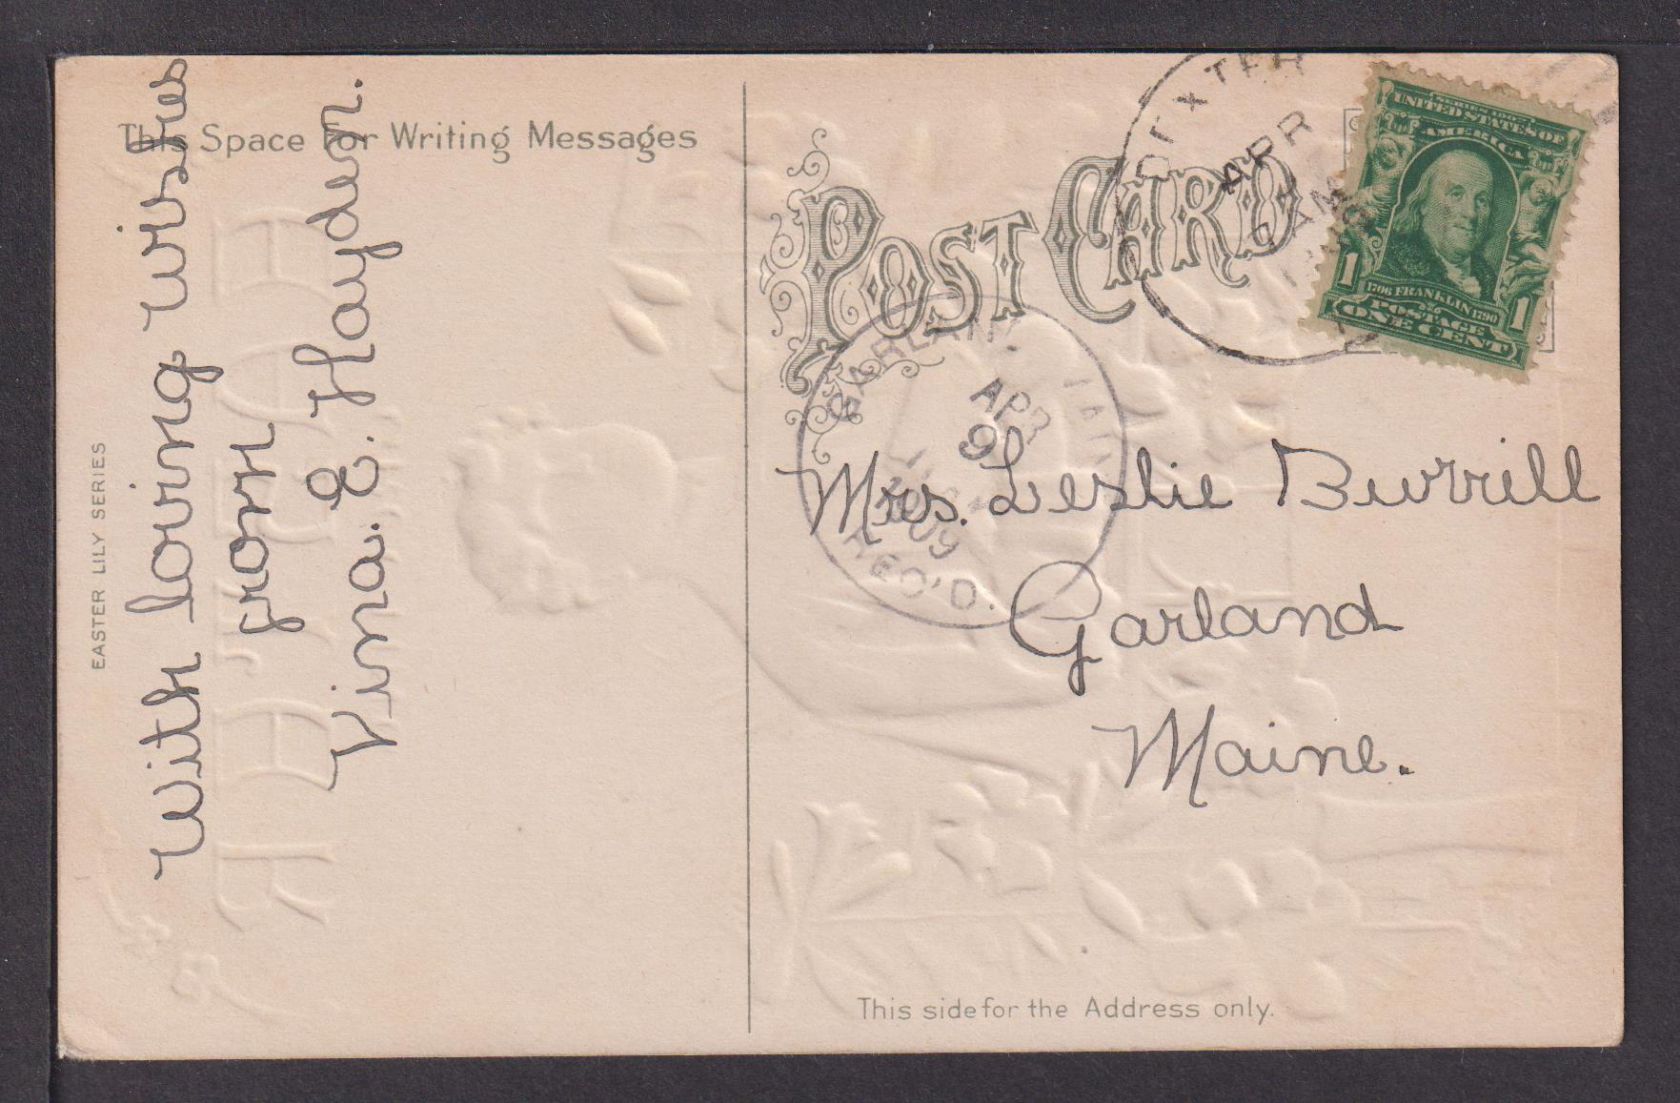 This Space For Writing Messages
With loving wishes
from
Vina. E. Hayden.
EASTER LILY SERIES
POST CARD
DEXTER
APR
AM
SERIES 1902
UNITED STATES OF
AMERICA
1706 FRANKLIN 1790
1 1
POSTAGE
ONE CENT
GARLAND
APR
9
1909
REC'D.
Mrs. Leslie Burrill
Garland
Maine.
This side for the Address only.